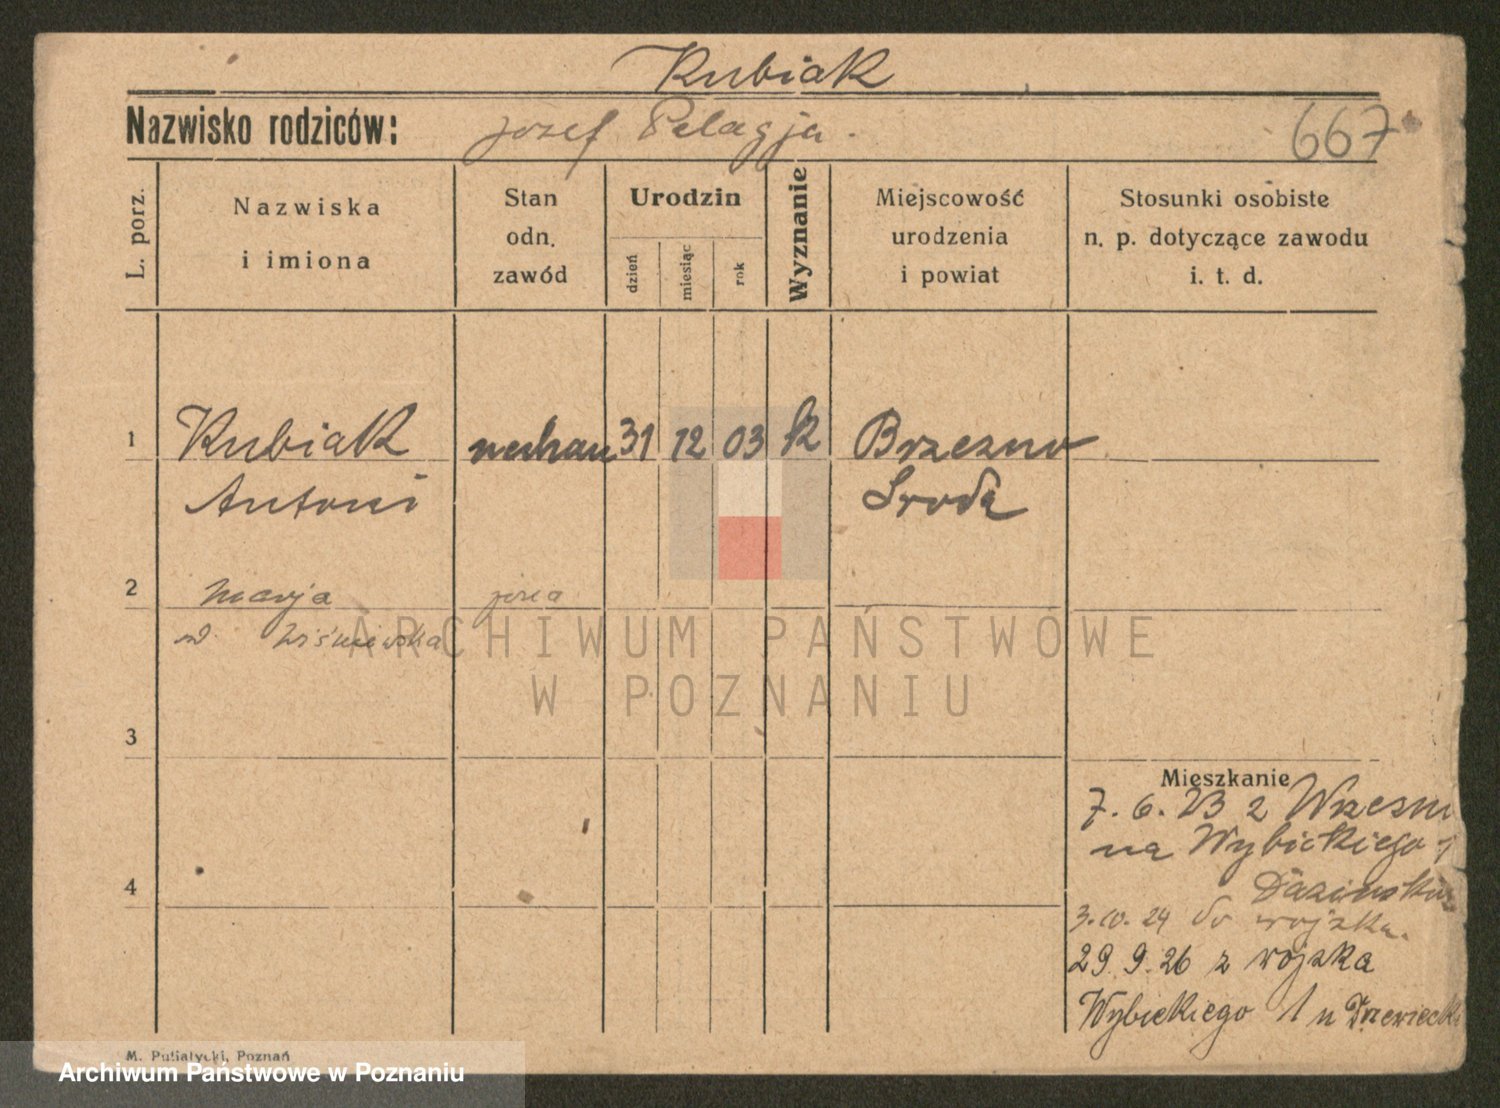 Kubiak
Nazwisko rodziców: Józef Pelagja. 667
L. porz.
Nazwiska
i imiona
Stan
odn.
zawód
Urodzin
dzień
miesiąc
rok
Wyznanie
Miejscowość
urodzenia
i powiat
Stosunki osobiste
n. p. dotyczące zawodu
i. t. d.
1 Kubiak 31 12 03 k Brzezno
Antoni Środa
2 Marja żona
Wiśniewska
3
Mieszkanie
7. 6. 23 z Wrześni
na Wybickiego
4
3.10.24 do wojska.
29. 9. 26 z wojska
Wybickiego 1 u
M. Putiatycki, Poznań
ARCHIWUM PAŃSTWOWE
W POZNANIU
Archiwum Państwowe w Poznaniu